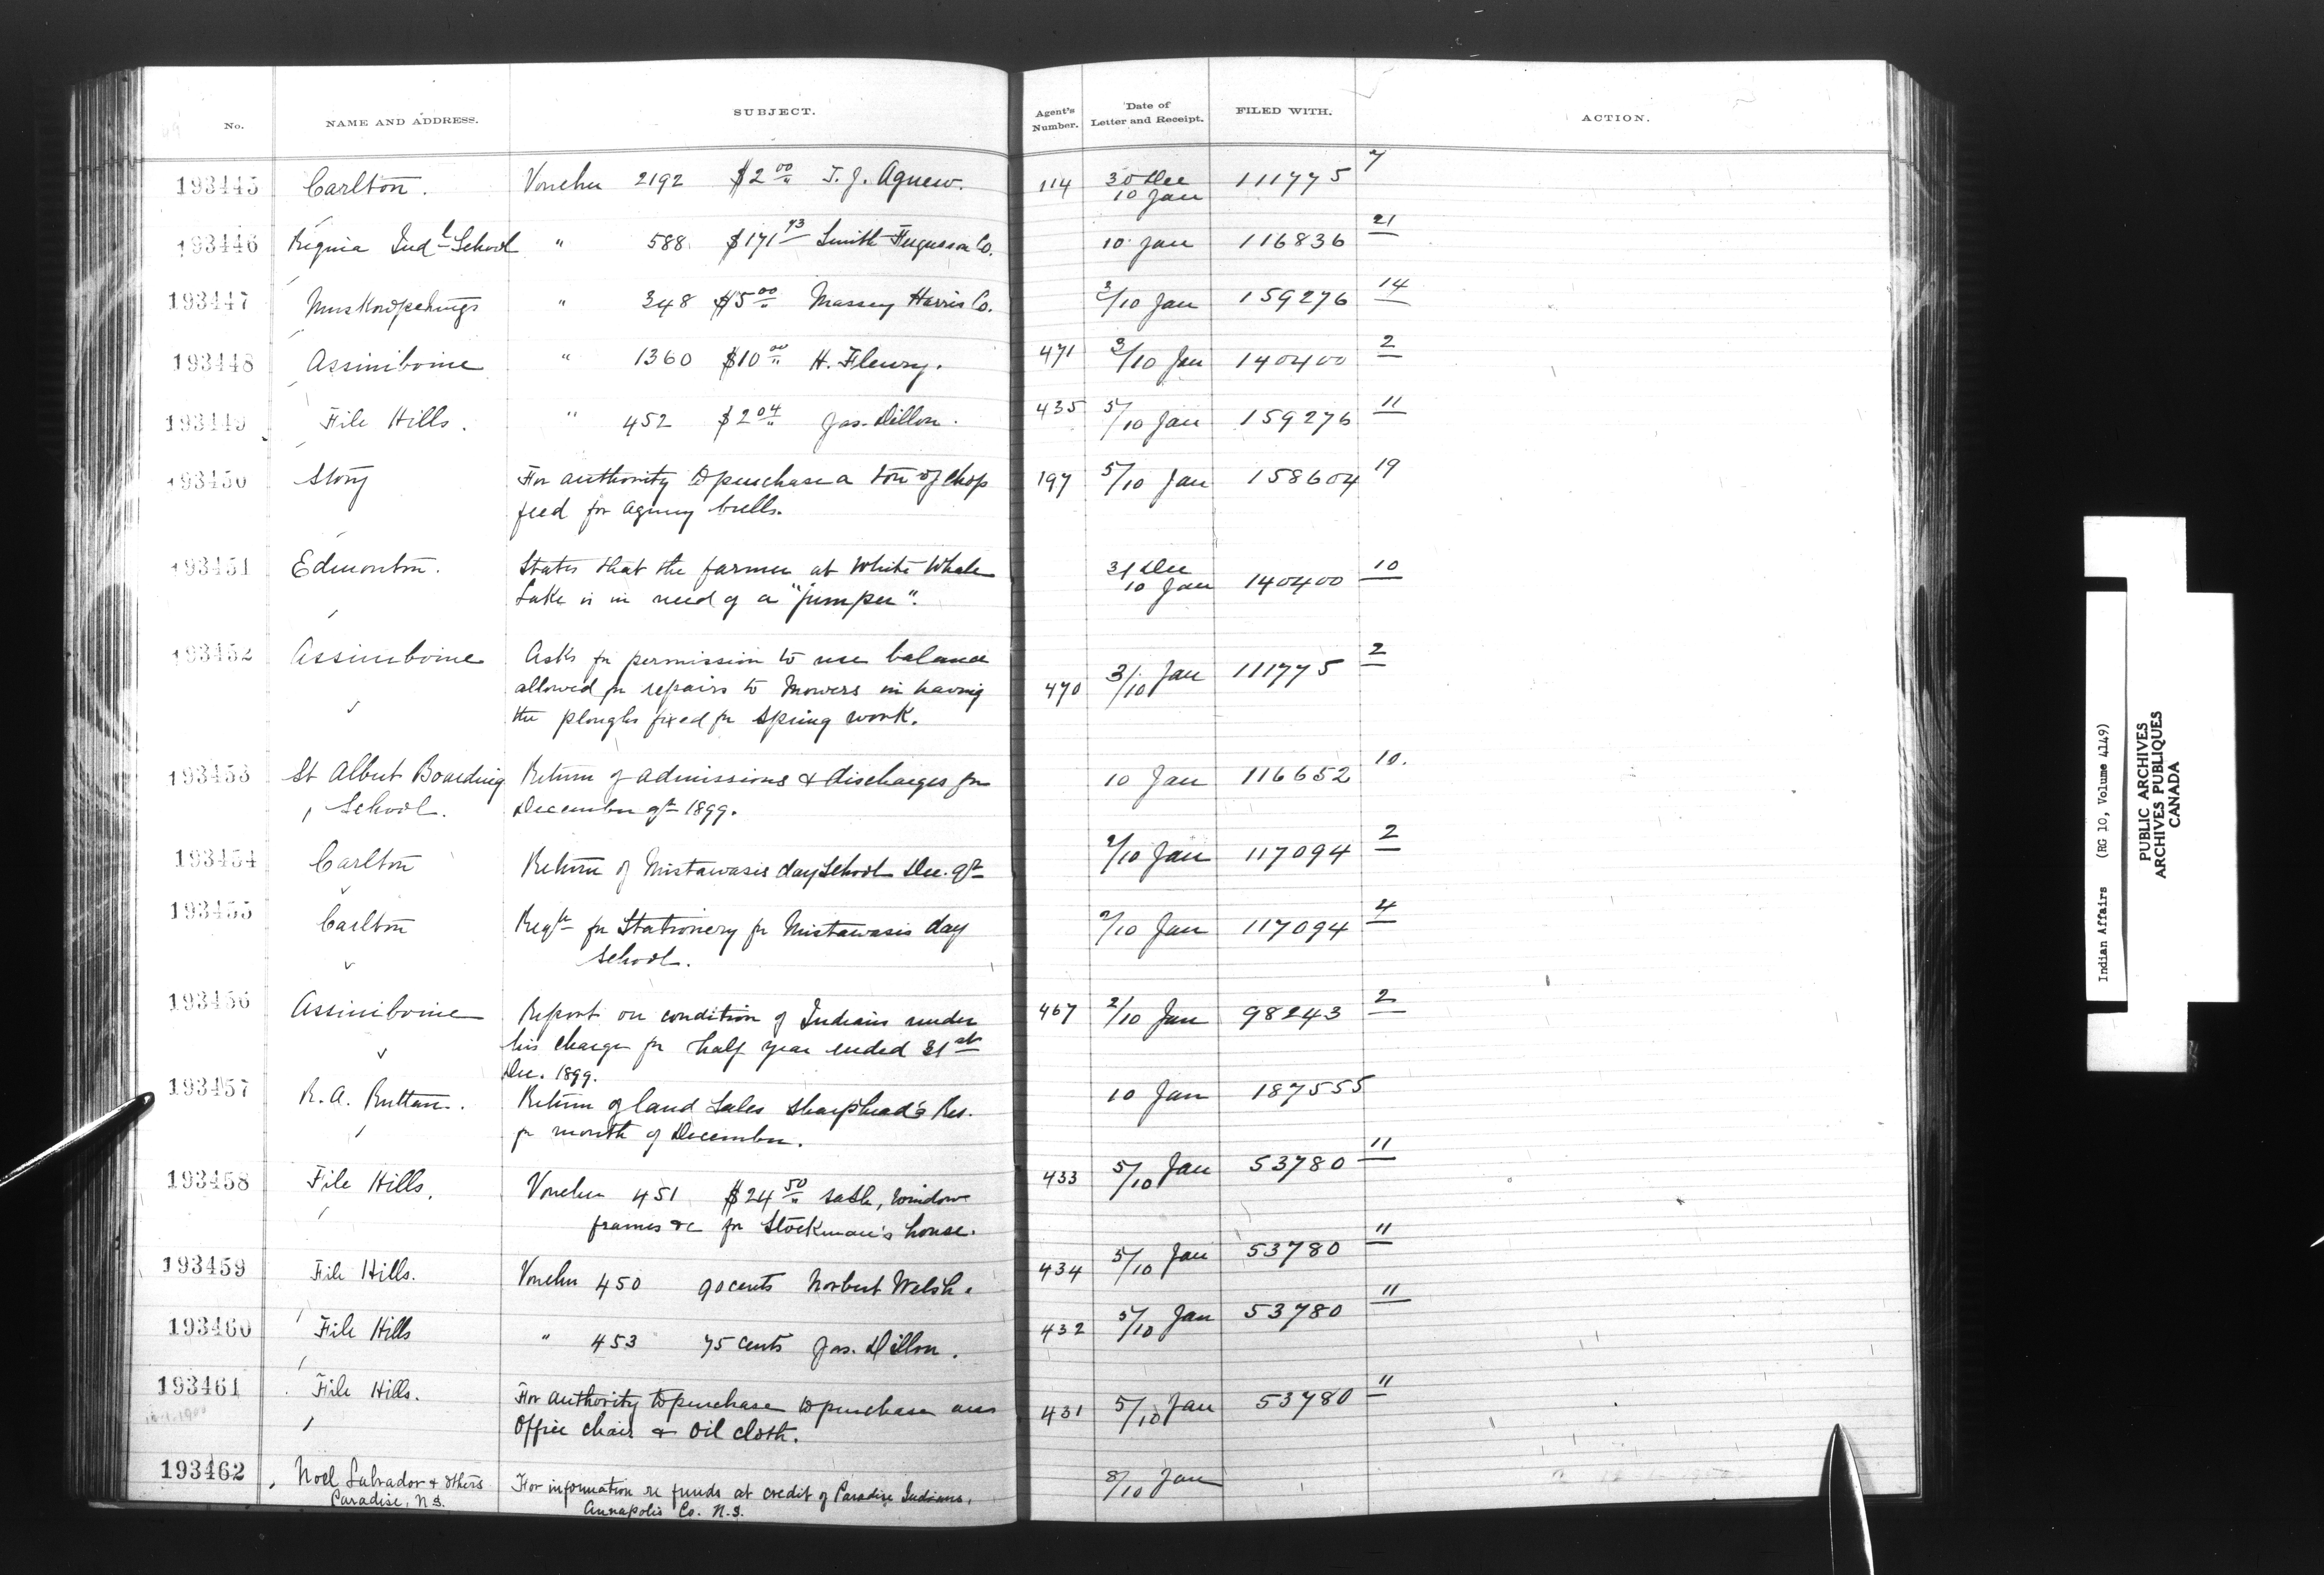 No. NAME AND ADDRESS. SUBJECT. Agent's Number. Date of Letter and Receipt. FILED WITH. ACTION.
193445 Carlton. Voucher 2192 $2 00 T. J. Agnew. 114 30 Dec 10 Jan 111775 7
193446 Regina Indl School " 588 $171 93 Smith Fergusson Co. 10 Jan 116836 21
193447 Muskowpetungs " 348 $5 00 Massey Harris Co. 3/10 Jan 159276 14
193448 Assiniboine " 1360 $10 00 H. Fleury. 471 3/10 Jan 140400 2
193449 File Hills. " 452 $2 04 Jas. Dillon. 435 5/10 Jan 159276 11
193450 Stony For authority to purchase a ton of chop 197 5/10 Jan 158604 19
feed for agency bulls.
193451 Edmonton. States that the farmer at White Whale 31 Dec 10 Jan 140400 10
Lake is in need of a "jumper".
193452 Assiniboine Asks for permission to use balance 470 3/10 Jan 111775 2
allowed for repairs to mowers in having
the ploughs fixed for spring work.
193453 St Albert Boarding Return of admissions & discharges for 10 Jan 116652 10.
School. December qr 1899.
193454 Carlton Return of Mistawasis day School Dec. qr /10 Jan 117094 2
193455 Carlton Reqn for Stationery for Mistawasis day /10 Jan 117094 4
School.
193456 Assiniboine Report on condition of Indians under 467 2/10 Jan 98243 2
his charge for half year ended 31st
Dec. 1899.
193457 R. A. Ruttan. Return of land Sales Sharphead's Res. 10 Jan 187555
for month of December.
193458 File Hills. Voucher 451 $24 50 sash, window 433 5/10 Jan 53780 11
frames &c for Stockman's house.
193459 File Hills. Voucher 450 90 cents Norbert Welsh. 434 5/10 Jan 53780 11
193460 File Hills " 453 75 cents Jas. Dillon. 432 5/10 Jan 53780 11
193461 File Hills. For authority to purchase to purchase 431 5/10 Jan 53780 11
Office chair & oil cloth.
193462 Noel Labrador & others For information re funds at credit of Paradise Indians, 8/10 Jan
Paradise, N.S. Annapolis Co. N.S.
Indian Affairs (RG 10, Volume 4149)
PUBLIC ARCHIVES
ARCHIVES PUBLIQUES
CANADA